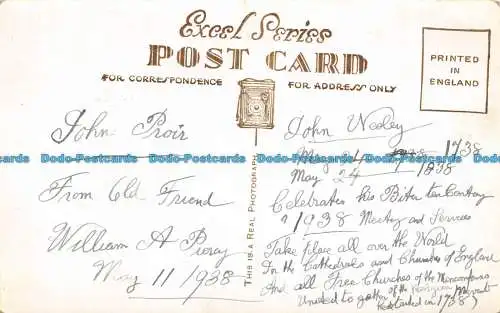 Excel Series
POST CARD
FOR CORRESPONDENCE
FOR ADDRESS ONLY
PRINTED
IN
ENGLAND
THIS IS A REAL PHOTOGRAPH
John
From Old Friend
William A
May 11 1938
John Wesley
May 24 1738
May 24 1838
Celebrates his
1938 Meeting and Services
Take place all over the World
In the Cathedrals and Churches of England
And all Free Churches of the
United
in 1738
Dodo-Postcards Dodo-Postcards Dodo-Postcards Dodo-Postcards
Dodo-Postcards Dodo-Postcards Dodo-Postcards Dodo-Postcards